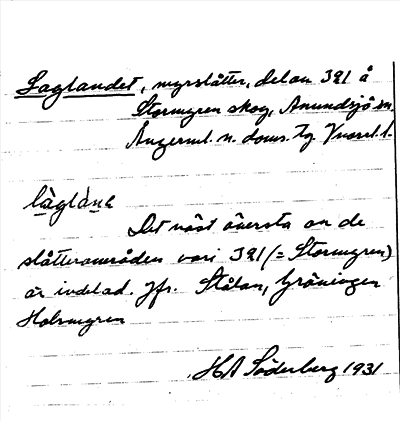 Laglandet, myrslåtter, del av 321 å
Stormyren skog, Anundsjö sn.
Ångerml. n. doms. tg Vnorrl. l.
låglàne
Det näst översta av de
slåtterområden vari 321 (= Stormyren)
är indelad. Jfr. Stålan,
Holmmyren
HA Söderberg 1931